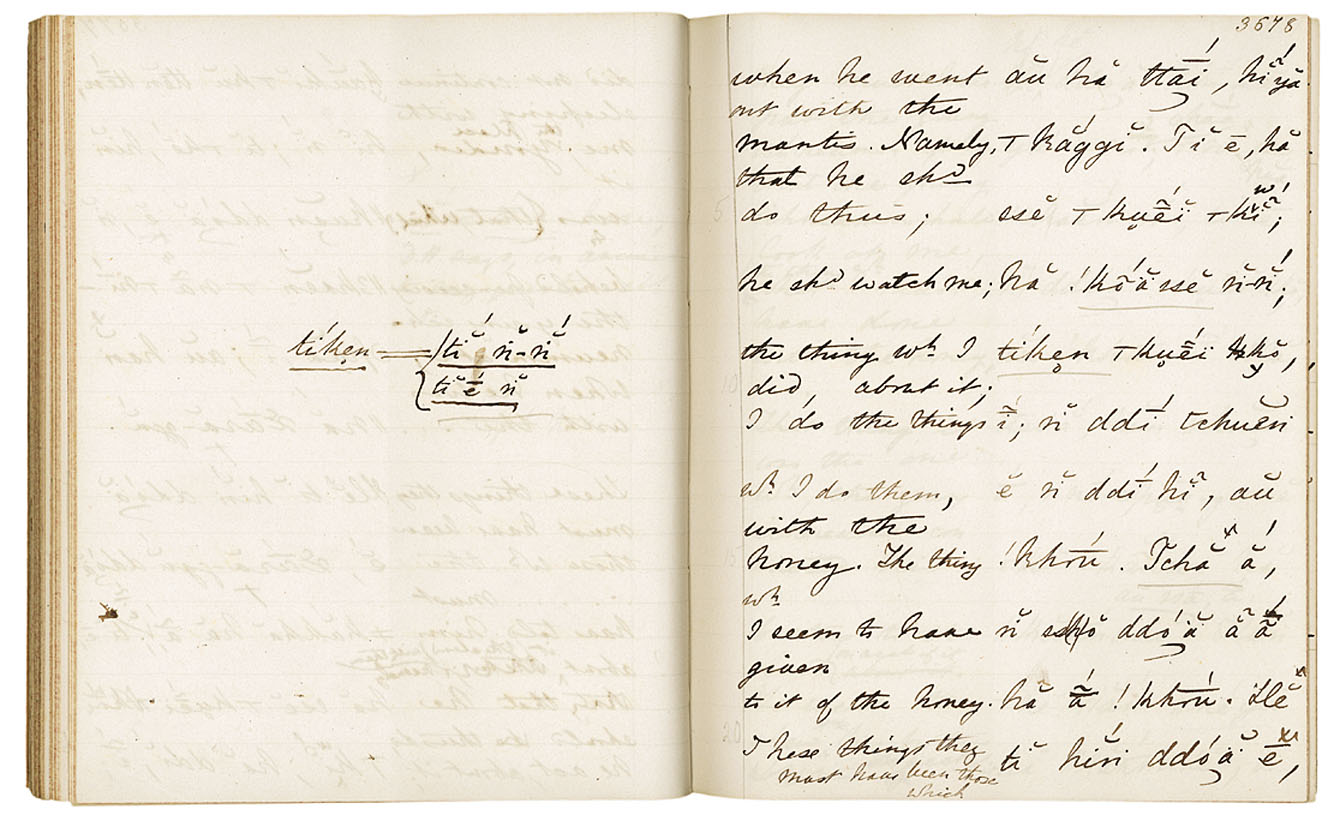 tíkẹn = tĭ́ n̆-n̆́
tĭ ḗ n̆
3678
when he went ău hă ttāí, hĭ̃́ yă
out with the
mantis. Namely, ⊤kăǵgĭ. Tĭ ē, hă
that he shd
do thus; ssĕ ⊤kụḗĭ ⊤kĭ̃́;
he shd watch me; hă !kṍăssĕ n̆-n̆́;
the thing wh. I tíkẹn ⊤kụḗĭ
did, about it;
I do the things ĭ̃; n̆ ddí̄ tchuĕn
wh. I do them, ĕ n̆ ddí̄ hĭ̃, ău
with the
honey. The thing !khōú. Tchă ắ,
wh.
I seem to have n̆ ddóă ẵ
given
to it of the honey. hă ā̃ !khōú. Hĕ
These things they tĭ hĭ́n ddóă ē,
must have been those
which